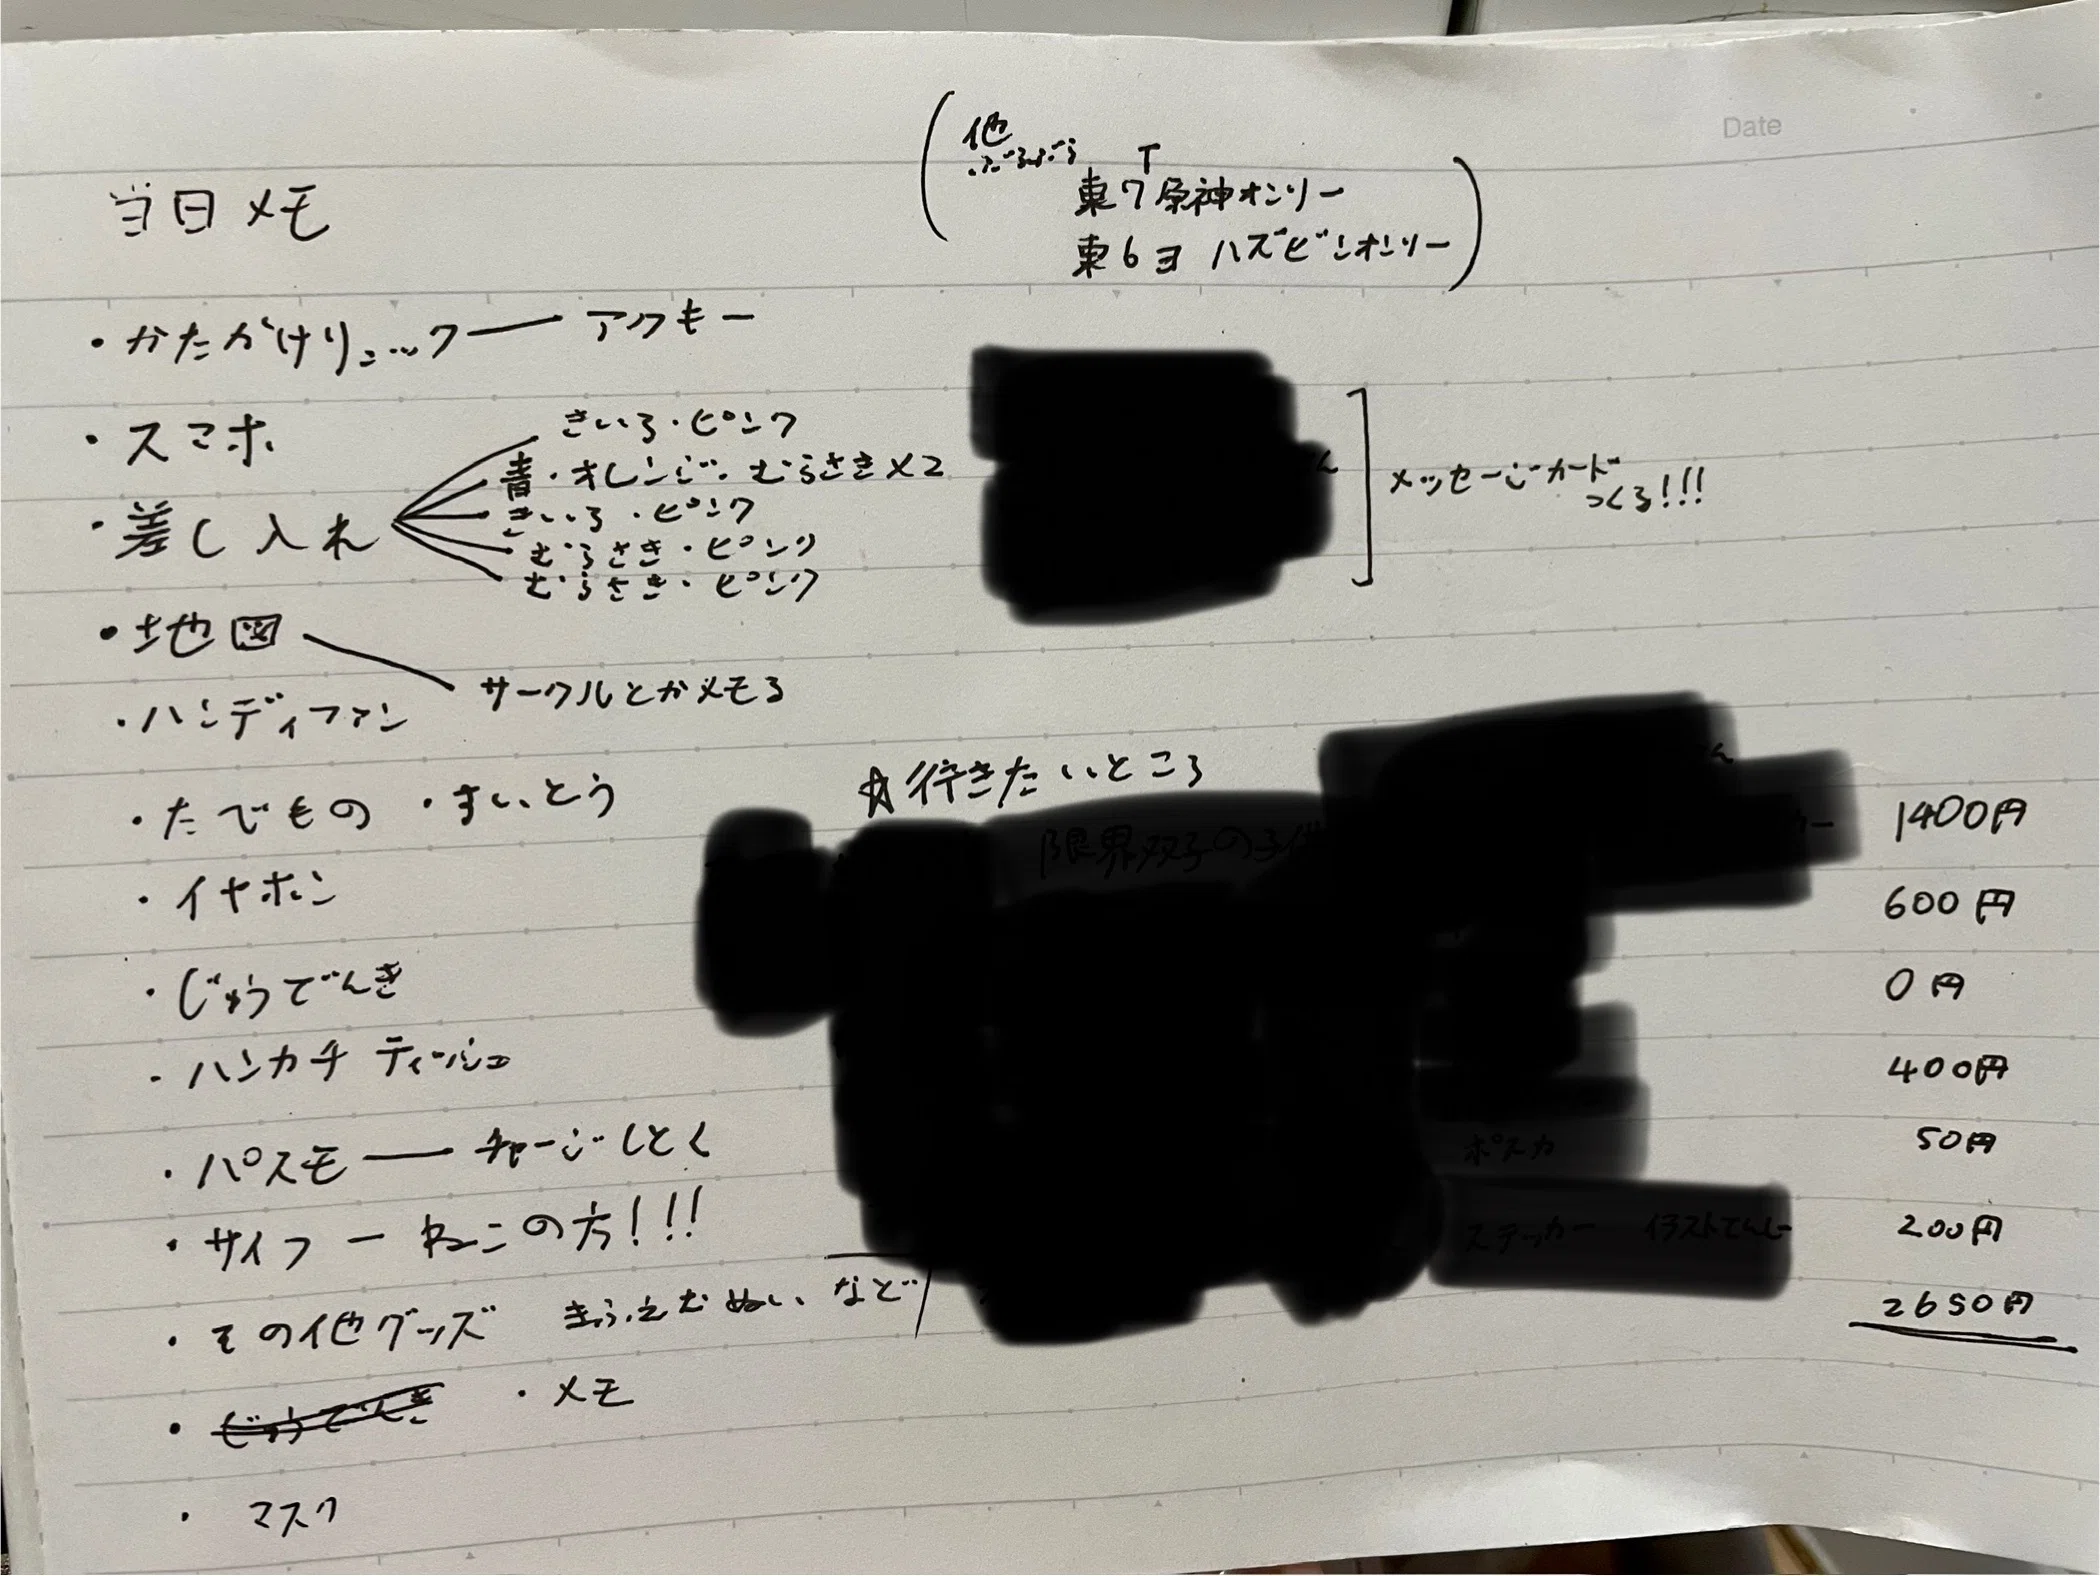 Date
他
ぶらぶら
T
東7 原神オンリー
東6ヨ ハズビンオンリー
当日メモ
・かたがけリュック ― アクキー
・スマホ
・差し入れ
きいろ・ピンク
青・オレンジ・むらさき×2
きいろ・ピンク
むらさき・ピンク
むらさき・ピンク
メッセージカード
つくる!!!
・地図
サークルとかメモる
・ハンディファン
・たべもの ・すいとう
・イヤホン
・じゅうでんき
・ハンカチ ティッシュ
・パスモ ― チャージしとく
・サイフ ― ねこの方!!!
・その他グッズ ぬい、など
・じゅうでんき ・メモ
・マスク
☆行きたいところ
限界双子の
1400円
600円
0円
400円
ポスカ 50円
ステッカー 200円
2650円